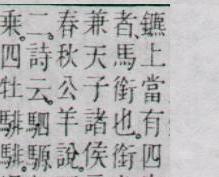 鑣上當有四
者、馬銜也、銜
兼天子諸侯
春秋公羊說、
二、詩云、駟騵
乘。四牡騑騑